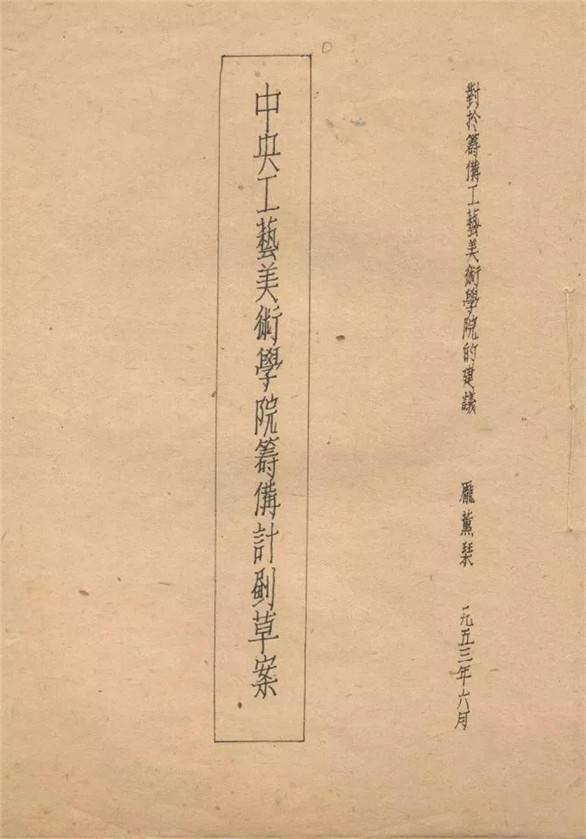 對於籌備工藝美術學院的建議 龐薰琹 一九五三年六月
中央工藝美術學院籌備計劃草案